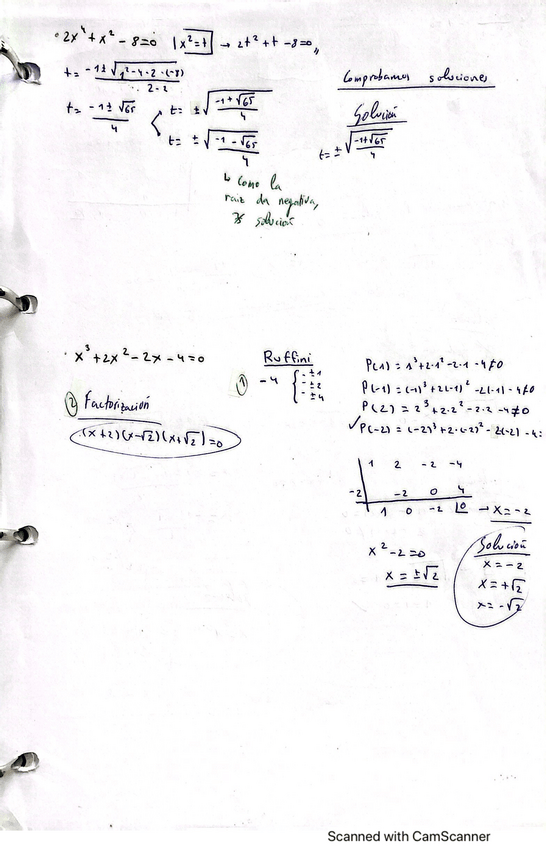 · 2x⁴ + x² - 8 = 0 | x² = t | → 2t² + t - 8 = 0,,
t = -1 ± √(1² - 4 · 2 · (-8)) / 2 · 2
t = -1 ± √65 / 4
t = ± √(-1 + √65 / 4)
t = ± √(-1 - √65 / 4)
↳ Como la
raiz da negativa,
∄ solución
Comprobamos soluciones
Solución
t = ± √(-1 + √65 / 4)
· x³ + 2x² - 2x - 4 = 0
② Factorización
(x + 2)(x - √2)(x + √2) = 0
Ruffini
① -4 { - ± 1
- ± 2
- ± 4
P(1) = 1³ + 2 · 1² - 2 · 1 - 4 ≠ 0
P(-1) = (-1)³ + 2(-1)² - 2(-1) - 4 ≠ 0
P(2) = 2³ + 2 · 2² - 2 · 2 - 4 ≠ 0
✓ P(-2) = (-2)³ + 2 · (-2)² - 2(-2) - 4 =
1 2 -2 -4
-2 -2 0 4
1 0 -2 0 → x = -2
x² - 2 = 0
x = ± √2
Solución
x = -2
x = + √2
x = - √2
Scanned with CamScanner